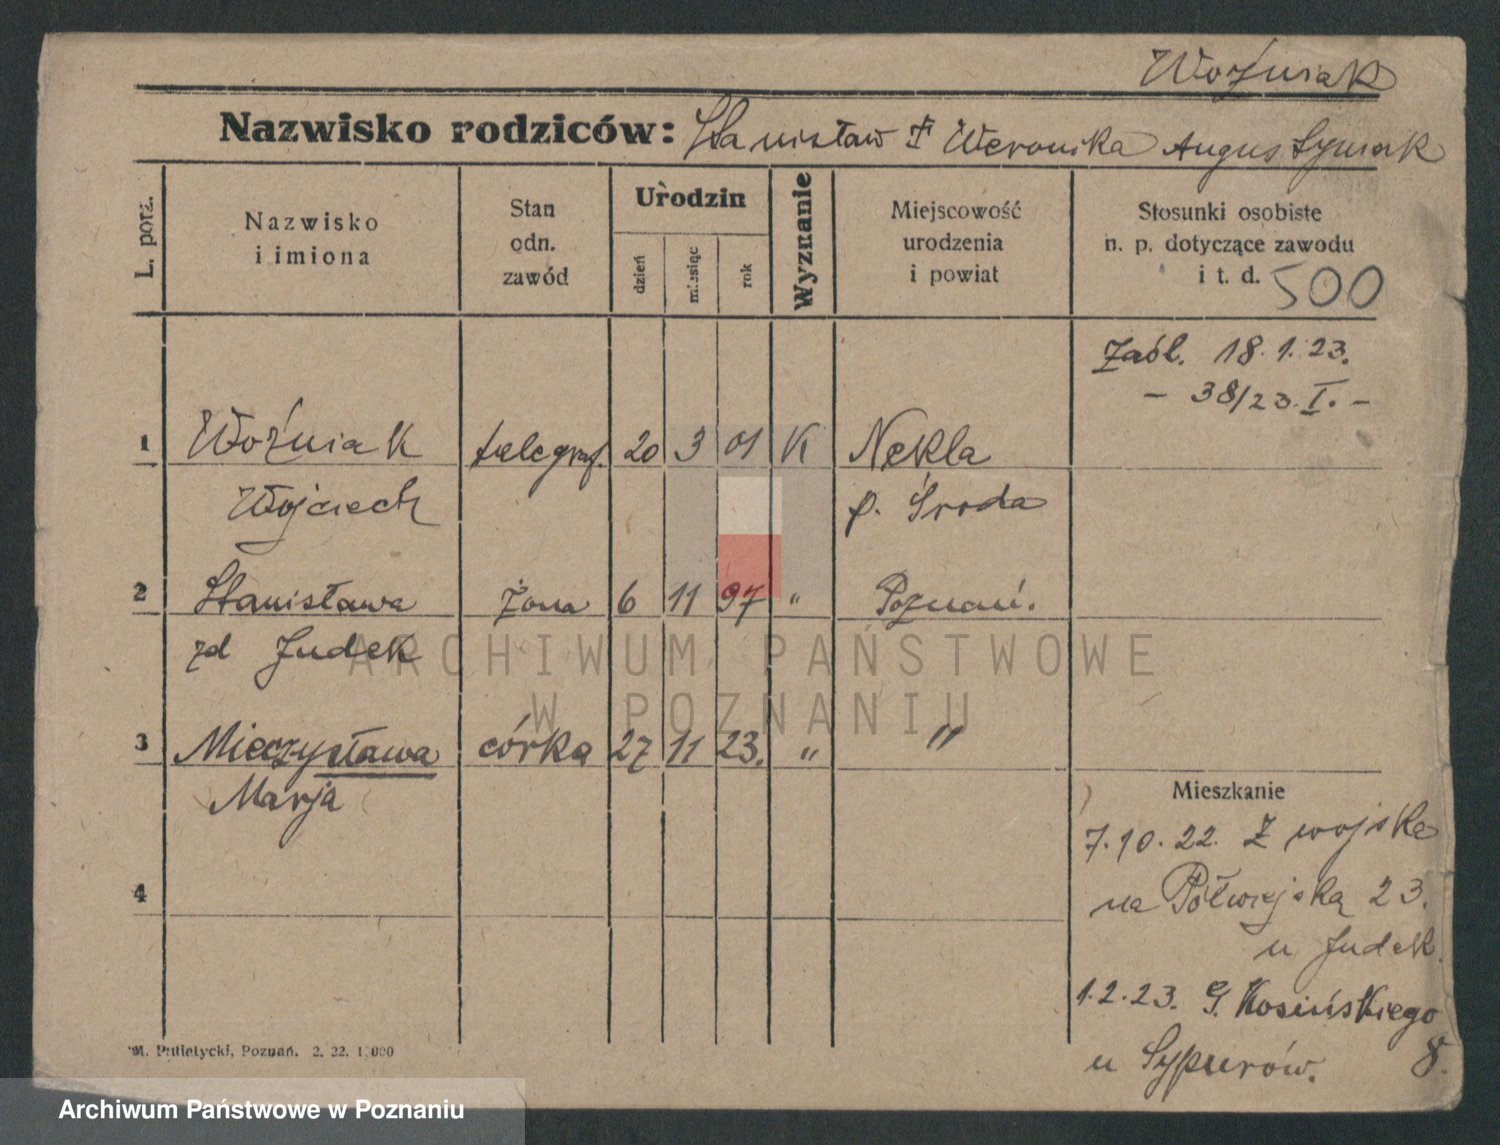 Woźniak
Nazwisko rodziców: Stanisław i Weronika Augustyniak
L. porz.
Nazwisko
i imiona
Stan
odn.
zawód
Urodzin
dzień
miesiąc
rok
Wyznanie
Miejscowość
urodzenia
i powiat
Stosunki osobiste
n. p. dotyczące zawodu
i t. d. 500
18.1.23.
- 38/23. I. -
1 Woźniak telegraf. 20 3 01 K Nekla
Wojciech p. Środa
2 Stanisława żona 6 11 97 " Poznań.
zd Judek
3 Mieczysława córka 27 11 23. " "
Marja
Mieszkanie
7.10.22. Z wojska
na Półwiejską 23.
u Judek.
1.2.23. G. Kosińskiego
8.
4
M. Putiatycki, Poznań. 2. 22. 1 000
ARCHIWUM PAŃSTWOWE
W POZNANIU
Archiwum Państwowe w Poznaniu